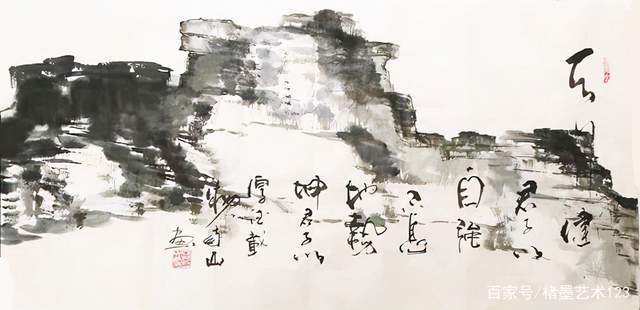 天行健
君子以
自強
不息
地勢
坤君子以
厚德載
物
山
畫
百家号/楮墨艺术123